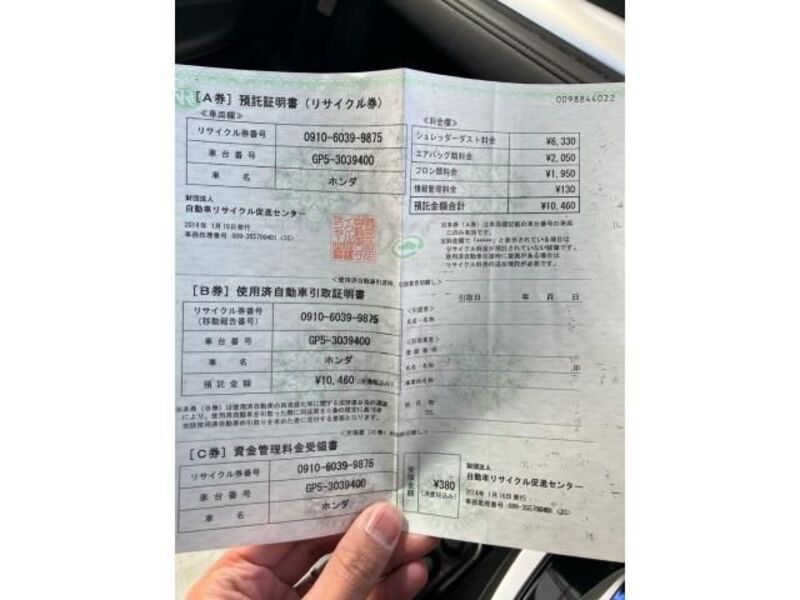 [A券] 預託証明書 (リサイクル券)
0098844022
<車両欄>
リサイクル券番号 0910-6039-9875
車台番号 GP5-3039400
車名 ホンダ
財団法人
自動車リサイクル促進センター
2014年 1月16日発行
<料金欄>
シュレッダーダスト料金 ¥6,330
エアバッグ類料金 ¥2,050
フロン類料金 ¥1,950
情報管理料金 ¥130
預託金額合計 ¥10,460
[B券] 使用済自動車引取証明書
リサイクル券番号
(移動報告番号) 0910-6039-9875
車台番号 GP5-3039400
車名 ホンダ
預託金額 ¥10,460
引取日 年 月 日
氏名・名称
TEL
[C券] 資金管理料金受領書
リサイクル券番号 0910-6039-9875
車台番号 GP5-3039400
車名 ホンダ
受領金額 ¥380
(消費税込み)
財団法人
自動車リサイクル促進センター
2014年 1月16日発行